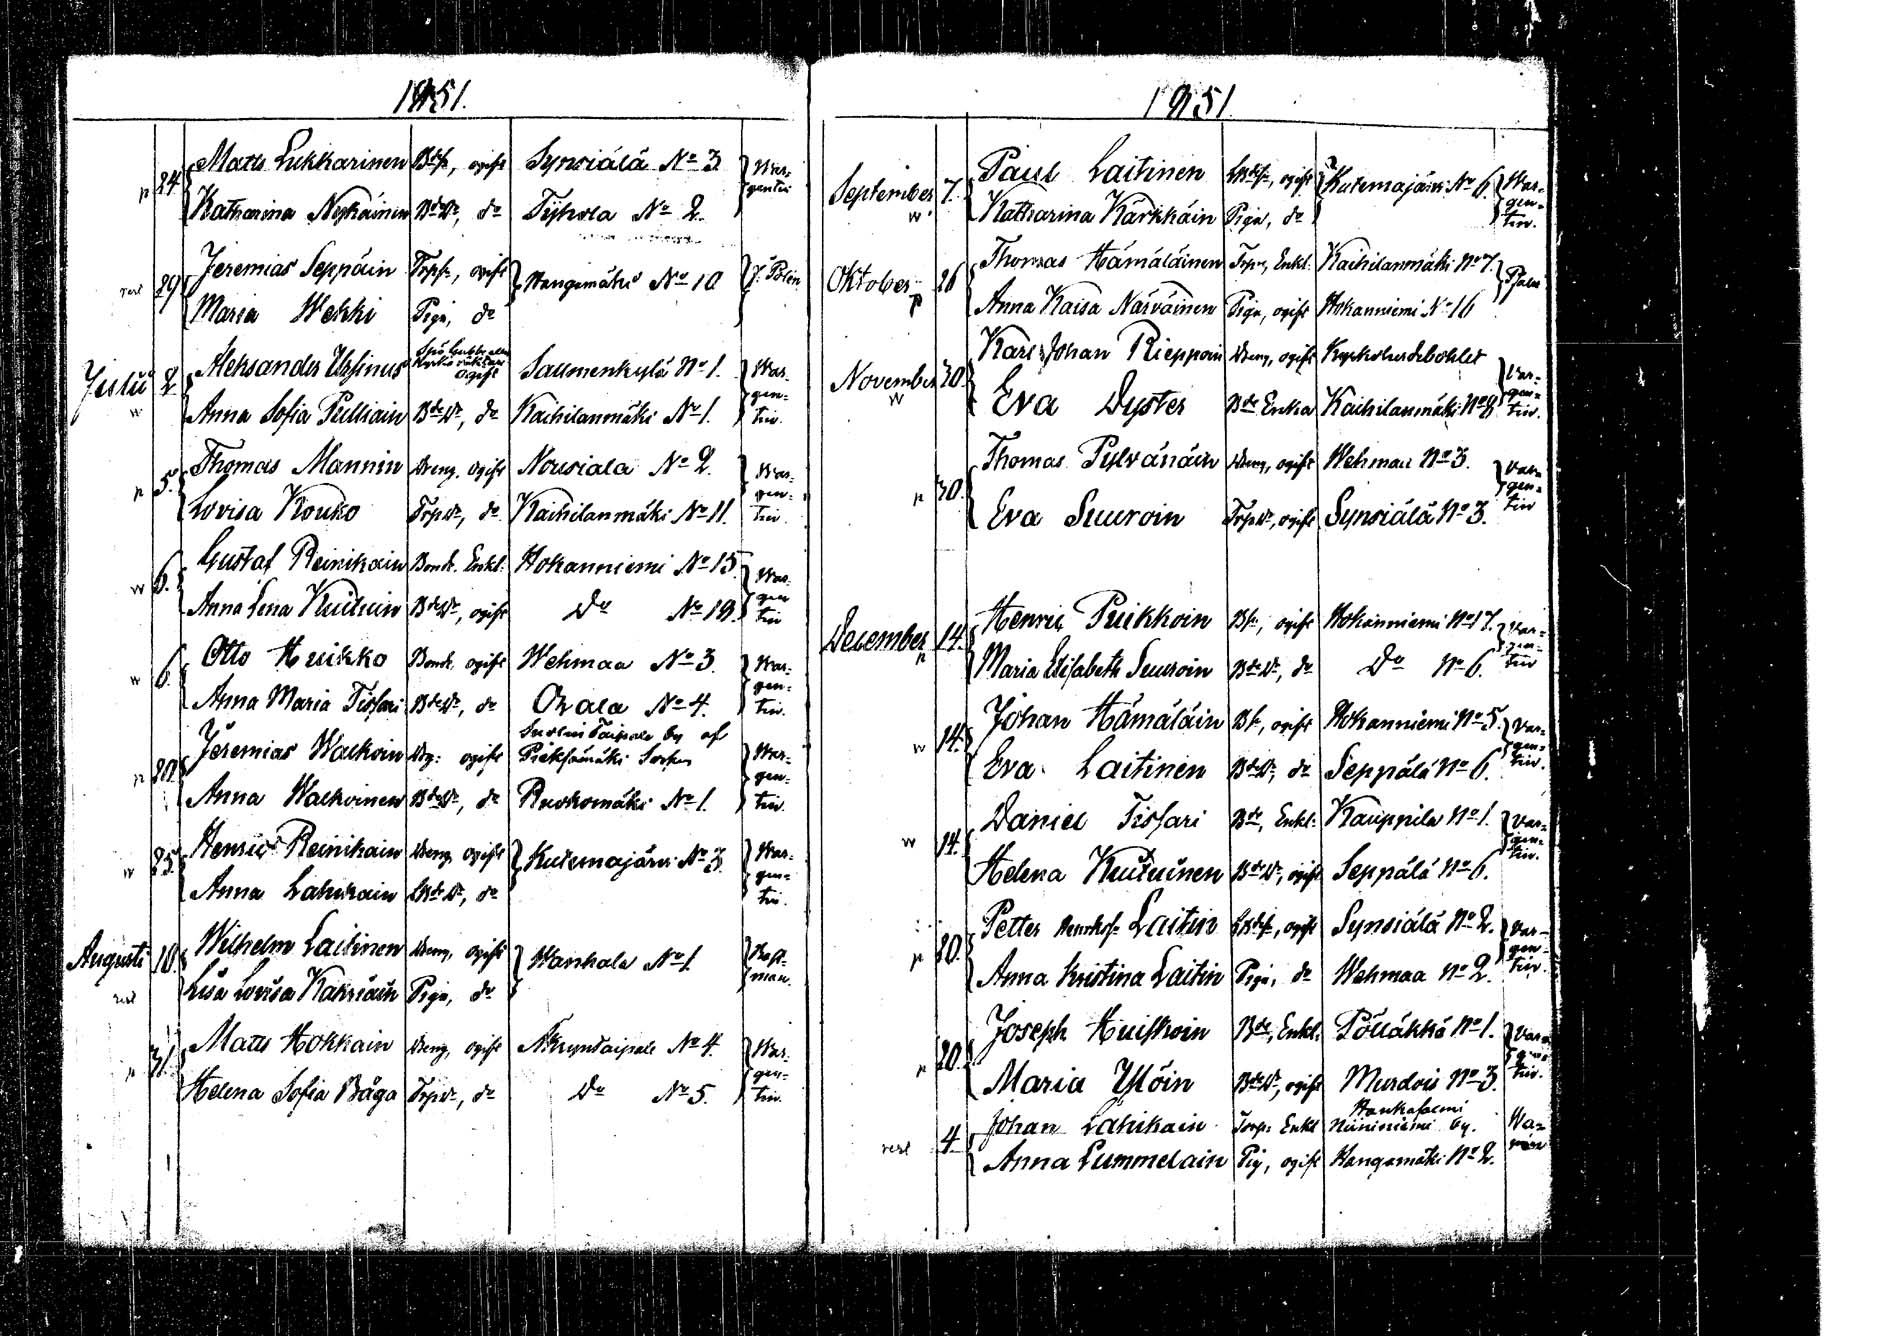 1851.
p 24. Matts Lukkarinen Bdes., ogift Synsiälä No 3 War-
gentin
Katharina Nykäinen BdeDr, do Tyhola No 2.
rest 29 Jeremias Seppäin Trps., ogift Hangamäki No 10 J. Polen
Maria Wekki Piga, do
Julii 2 Aleksander Ursinus ogift Saumenkylä No 1. War-
w gen-
Anna Sofia Pulliain BdeDr, do Kaihilanmäki No 1. tin.
p 5. Thomas Mannin Dreng, ogift Nousiala No 2. War-
gen-
Lovisa Kouko TrpDr, do Kaihilanmäki No 11. tin.
w 6. Gustaf Reinikain Bonde, Enkl. Hokanniemi No 15. War-
gen
Anna Lena Kuituin BdeDr, ogift Do No 18. tin
w 6. Otto Huikko Bonde, ogift Wehmaa No 3. War-
gen-
Anna Maria Tissari BdeDr, do Ovala No 4. tin.
Taipale by af
p 20. Jeremias Walkoin Drg: ogift Pieksämäki Socken War-
gen-
Anna Walkoinen BdeDr, do Ruokomäki No 1. tin.
w 25. Henric Reinikain Dreng, ogift Kutemajärvi No 3. War-
gen-
Anna Lahikain do tin.
Augusti 10. Wilhelm Laitinen Dreng, ogift Wanhala No 1. Hoff-
man.
rest Lisa Lovisa Kakriain Piga, do
p 31. Matts Hokkain Dreng, ogift No 4. War-
gen-
Helena Sofia Båga TrpDr, do Do No 5. tin.
1851
September 7. Paul Laitinen ogift Kutemajärvi No 6. War-
gen-
w Katharina Kärkkäin Piga, do tin.
Oktober 26 Thomas Hämäläinen Trpr, Enkl. Kaihilanmäki No 7. Pfaler
p Anna Kaisa Närväinen Piga, ogift Hokanniemi No 16
November 30. Karl Johan Rieppoin Dreng, ogift Kyrkoherdebohlet War-
gen-
w Eva Dyster Bde Enka Kaihilanmäki No 8 tin.
p 30. Thomas Pylvänäin Dreng, ogift Wehmaa No 3. War-
gen-
Eva Suuroin TrpDr, ogift Synsiälä No 3. tin
December 14. Henric Puikkoin Bs., ogift Hokanniemi No 17. War-
gen-
p Maria Elisabeth Suuroin BdeDr, do Do No 6. tin
w 14. Johan Hämäläin Bs., ogift Hokanniemi No 5. War-
gen-
Eva Laitinen BdeDr, do Seppälä No 6. tin.
w 14. Daniel Tissari Bde, Enkl. Kauppila No 1. War-
gen-
Helena Kuituinen BdeDr, ogift Seppälä No 6. tin.
p 20. Petter Laitin ogift Synsiälä No 2. War-
gen-
Anna Kristina Laitin Piga, do Wehmaa No 2. tin.
p 20. Joseph Huiskoin Bde, Enkl. Pölläkkä No 1. War-
gen-
Maria Ylöin BdeDr, ogift Murdois No 3. tin.
Hankasalmi
rest 4 Johan Lahikain Torp. Enkl Niininiemi by.
Anna Lummelain Pig, ogift Hangamäki No 2.